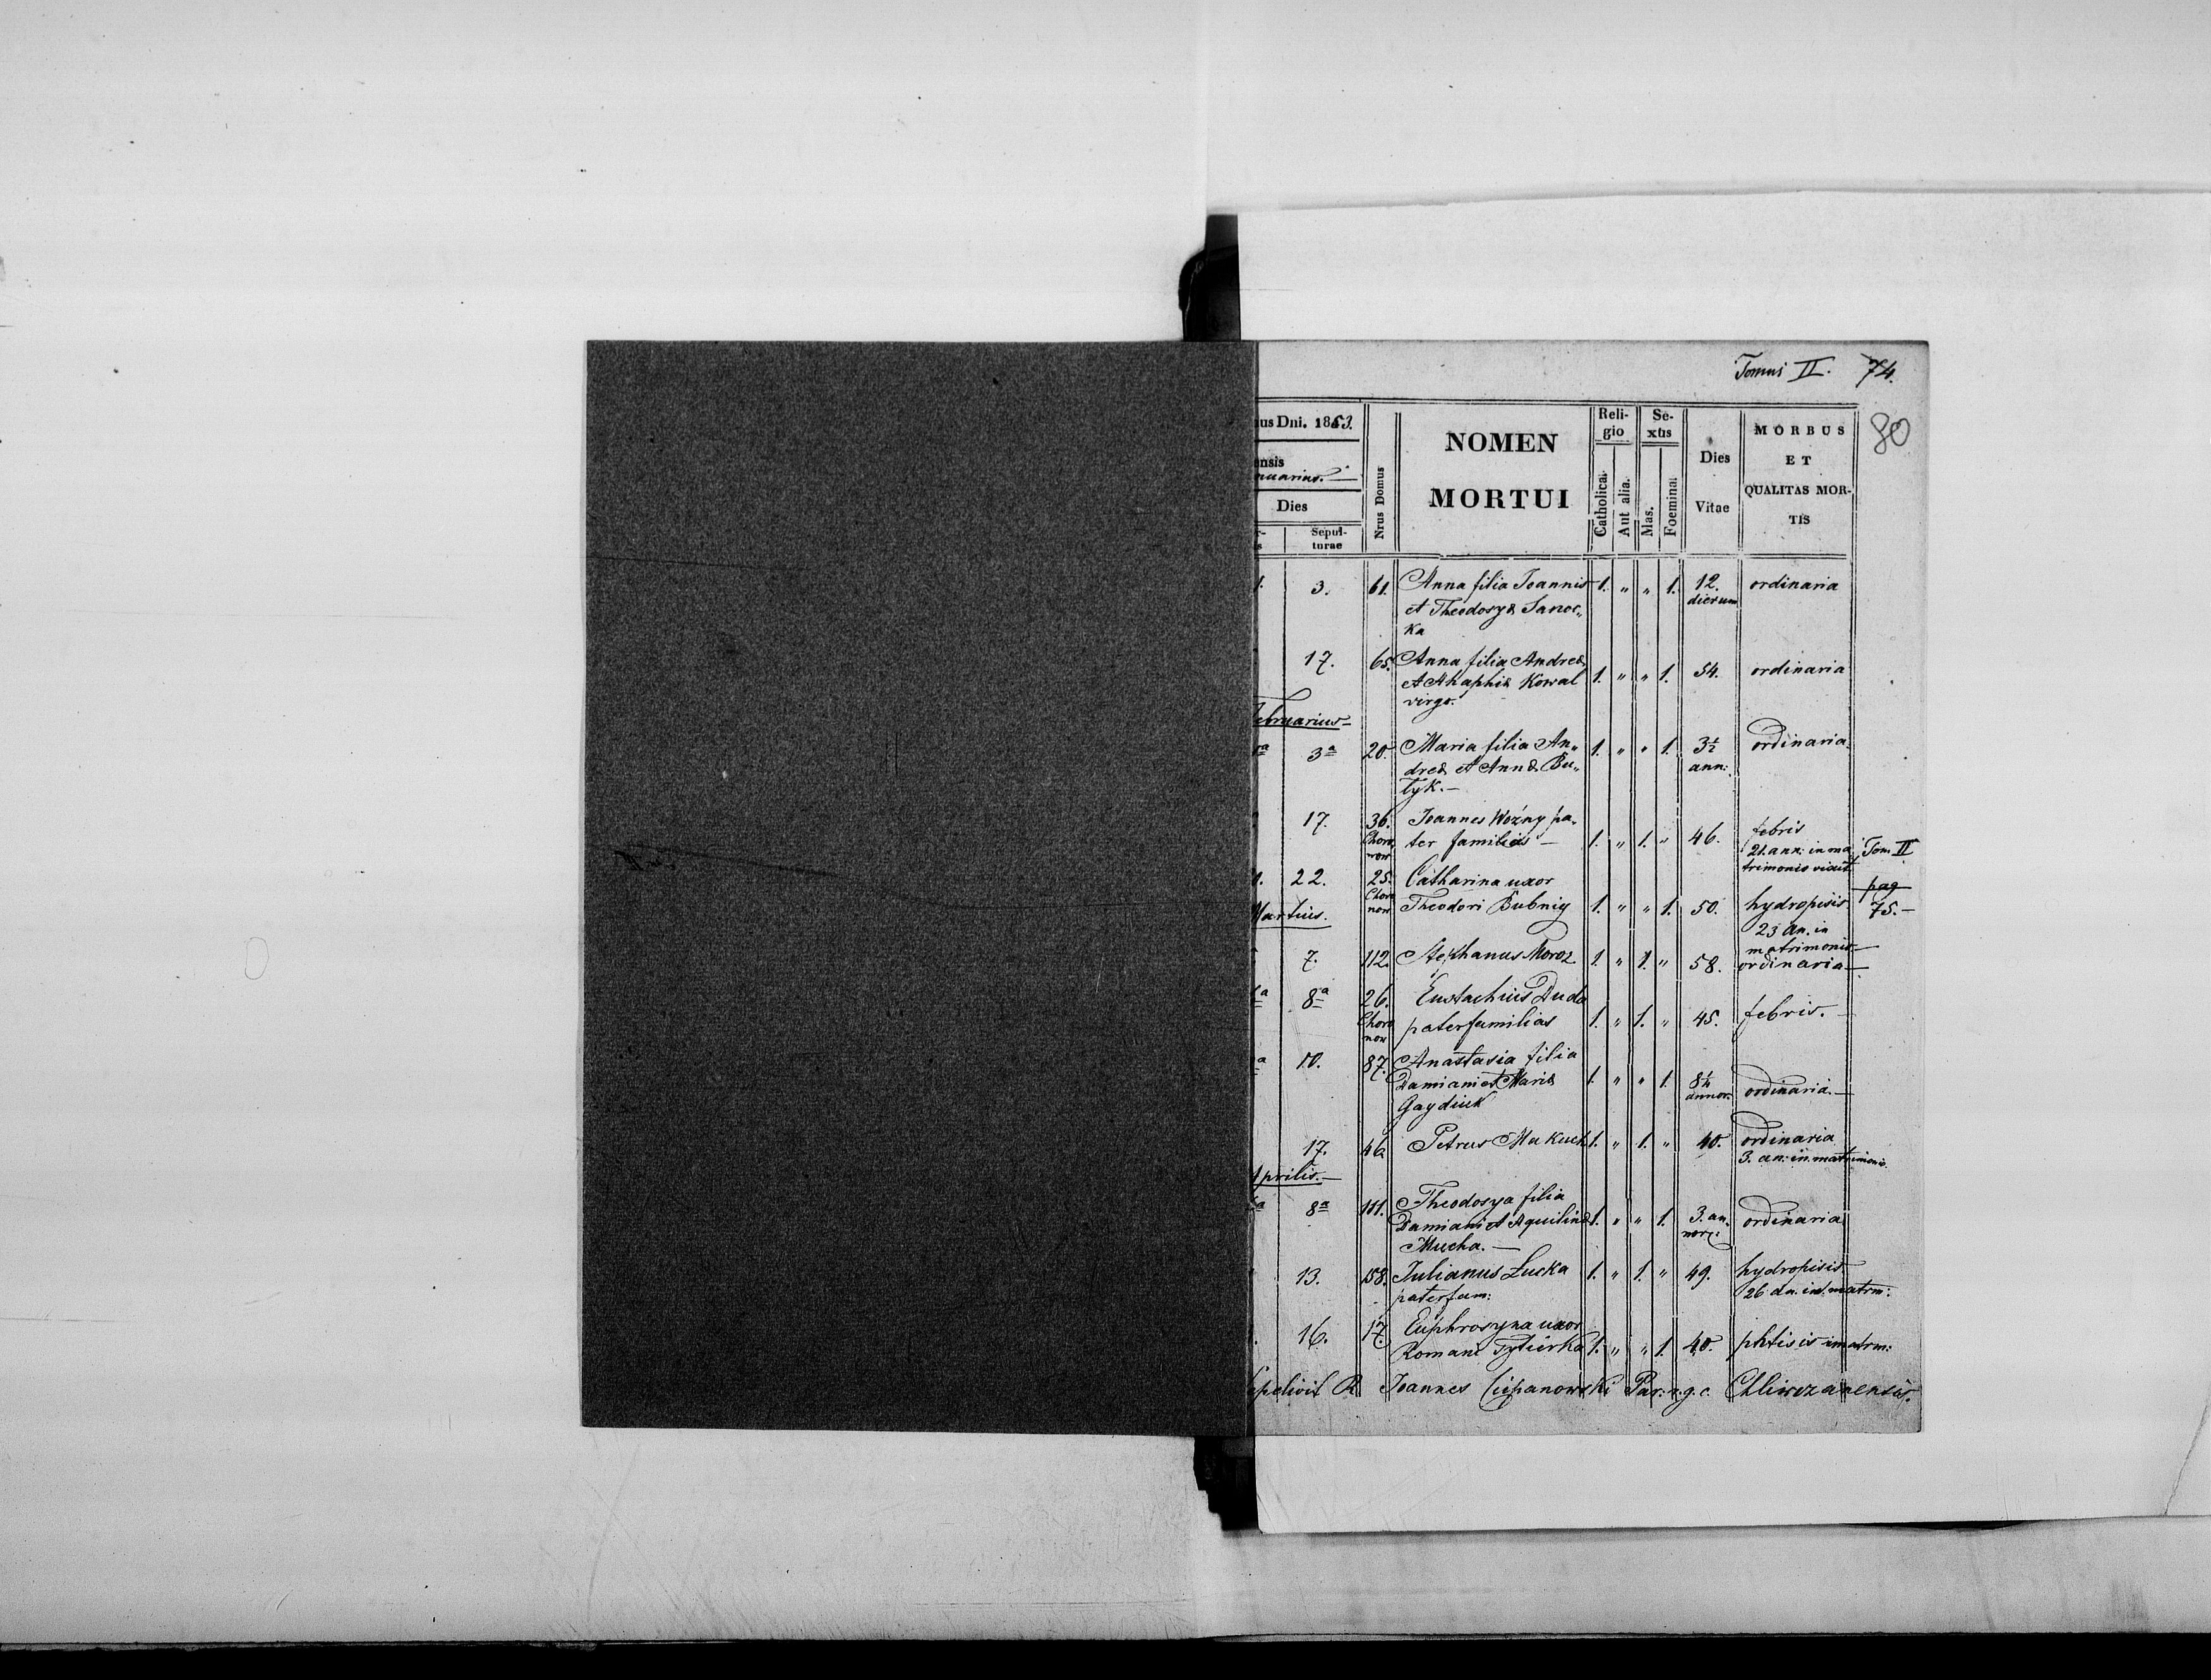 Tomus II. 74.
80
us Dni. 1853.
ensis
nuarius.
Dies
Sepul-
turae
Nrus Domus
NOMEN
MORTUI
Reli-
gio
Catholica.
Aut alia.
Se-
xus
Mas.
Foemina.
Dies
Vitae
MORBUS
ET
QUALITAS MOR-
TIS
3. 61. Anna filia Joannis 1. " " 1. 12. ordinaria
et Theodosyæ Sanoc„ dierum
ka
17. 65. Anna filia Andreæ
et Ahaphiæ Kowal 1. " " 1. 54. ordinaria
virgo.
Februarius
3ª 20. Maria filia An„ 1. " " 1. 3½ ordinaria.
dreæ et Annæ Bu„ ann:
tyk.—
17. 36. Joannes Woźny pa„
Choro ter familias — 1. " 1. " 46. febris
now 21. ann: in ma Tom II
trimonio vixit
22. 25. Catharina uxor pag
Choro Theodori Bubniy 1. " " 1. 50. hydropisis 75.—
now
Martius. 23 an. in
matrimonio
7. 112. Stephanus Moroz 1. " 1. " 58. ordinaria—
8ª 26. Eustachius Duda
Choro paterfamilias 1. " 1. " 45. febris.
now
10. 87. Anastasia filia
Damiani et Mariæ 1. " " 1. 8½ ordinaria.—
Gaydiuk annor:
17. 46. Petrus Makuch 1. " 1. " 40. ordinaria
3. an: in matrimonio
Aprilis.—
8ª 111. Theodosya filia
Damiani et Aquilinæ 1. " " 1. 3. an. ordinaria
Mucha.— nor:
13. 158. Julianus Lucka 1. " 1. " 49. hydropisis
paterfam: 26 an. in matrm:
16. 17. Euphrosyna uxor
Romani 1. " " 1. 40. phtisis in matrm:
Sepelivit R Joannes Ciepanowski Par: r. g. c. Chliwczanensis.